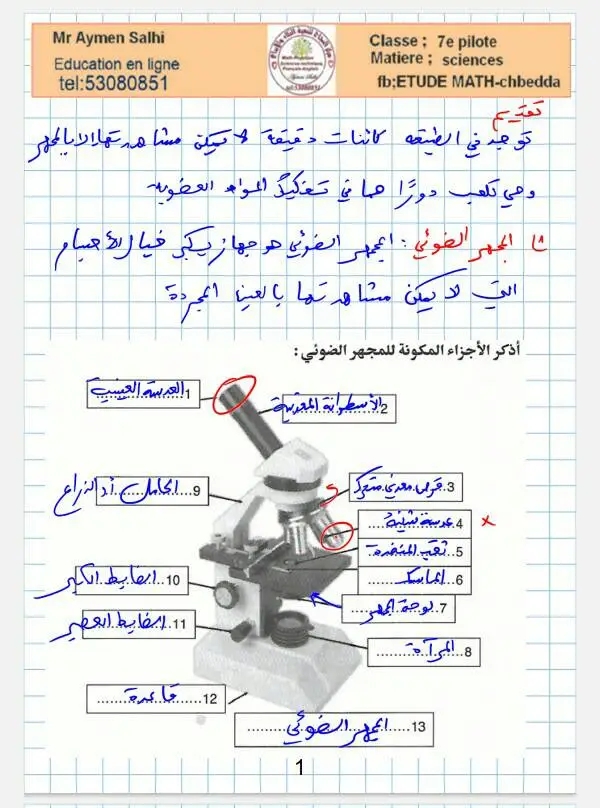 Mr Aymen Salhi
Education en ligne
tel:53080851
Classe ; 7e pilote
Matiere ; sciences
fb;ETUDE MATH-chbedda
تقديم
توجد في الطبيعة كائنات دقيقة لا يمكن مشاهدتها الا بالمجهر
وهي تلعب دورًا هما في تفكيك المواد العضوية
المجهر الضوئي : المجهر الضوئي هو جهاز يكبر خيال الأجسام
التي لا يمكن مشاهدتها بالعين المجردة
أذكر الأجزاء المكونة للمجهر الضوئي :
1 العدسة العينية
2 الأسطوانة
3. قرص معدني متحرك
4. عدسة شيئية
5. ثقب المنضدة
6. الماسك
7. لوحة المجهر
8. المرآة
9. الحامل أو الذراع
10. الضابط الكبير
11. الضابط الصغير
12 قاعدة
13 المجهر الضوئي
1